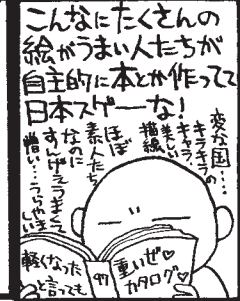 こんなにたくさんの
絵がうまい人たちが
自主的に本とか作ってて
日本スゲーな!
変な国…
キラキラの
キャラ、
美しい
描線
ほぼ
素人たち
なのに
すんげえうまくて
憎い…うらやましい
重いぜ♡
カタログ♡
軽くなった
と言っても
97